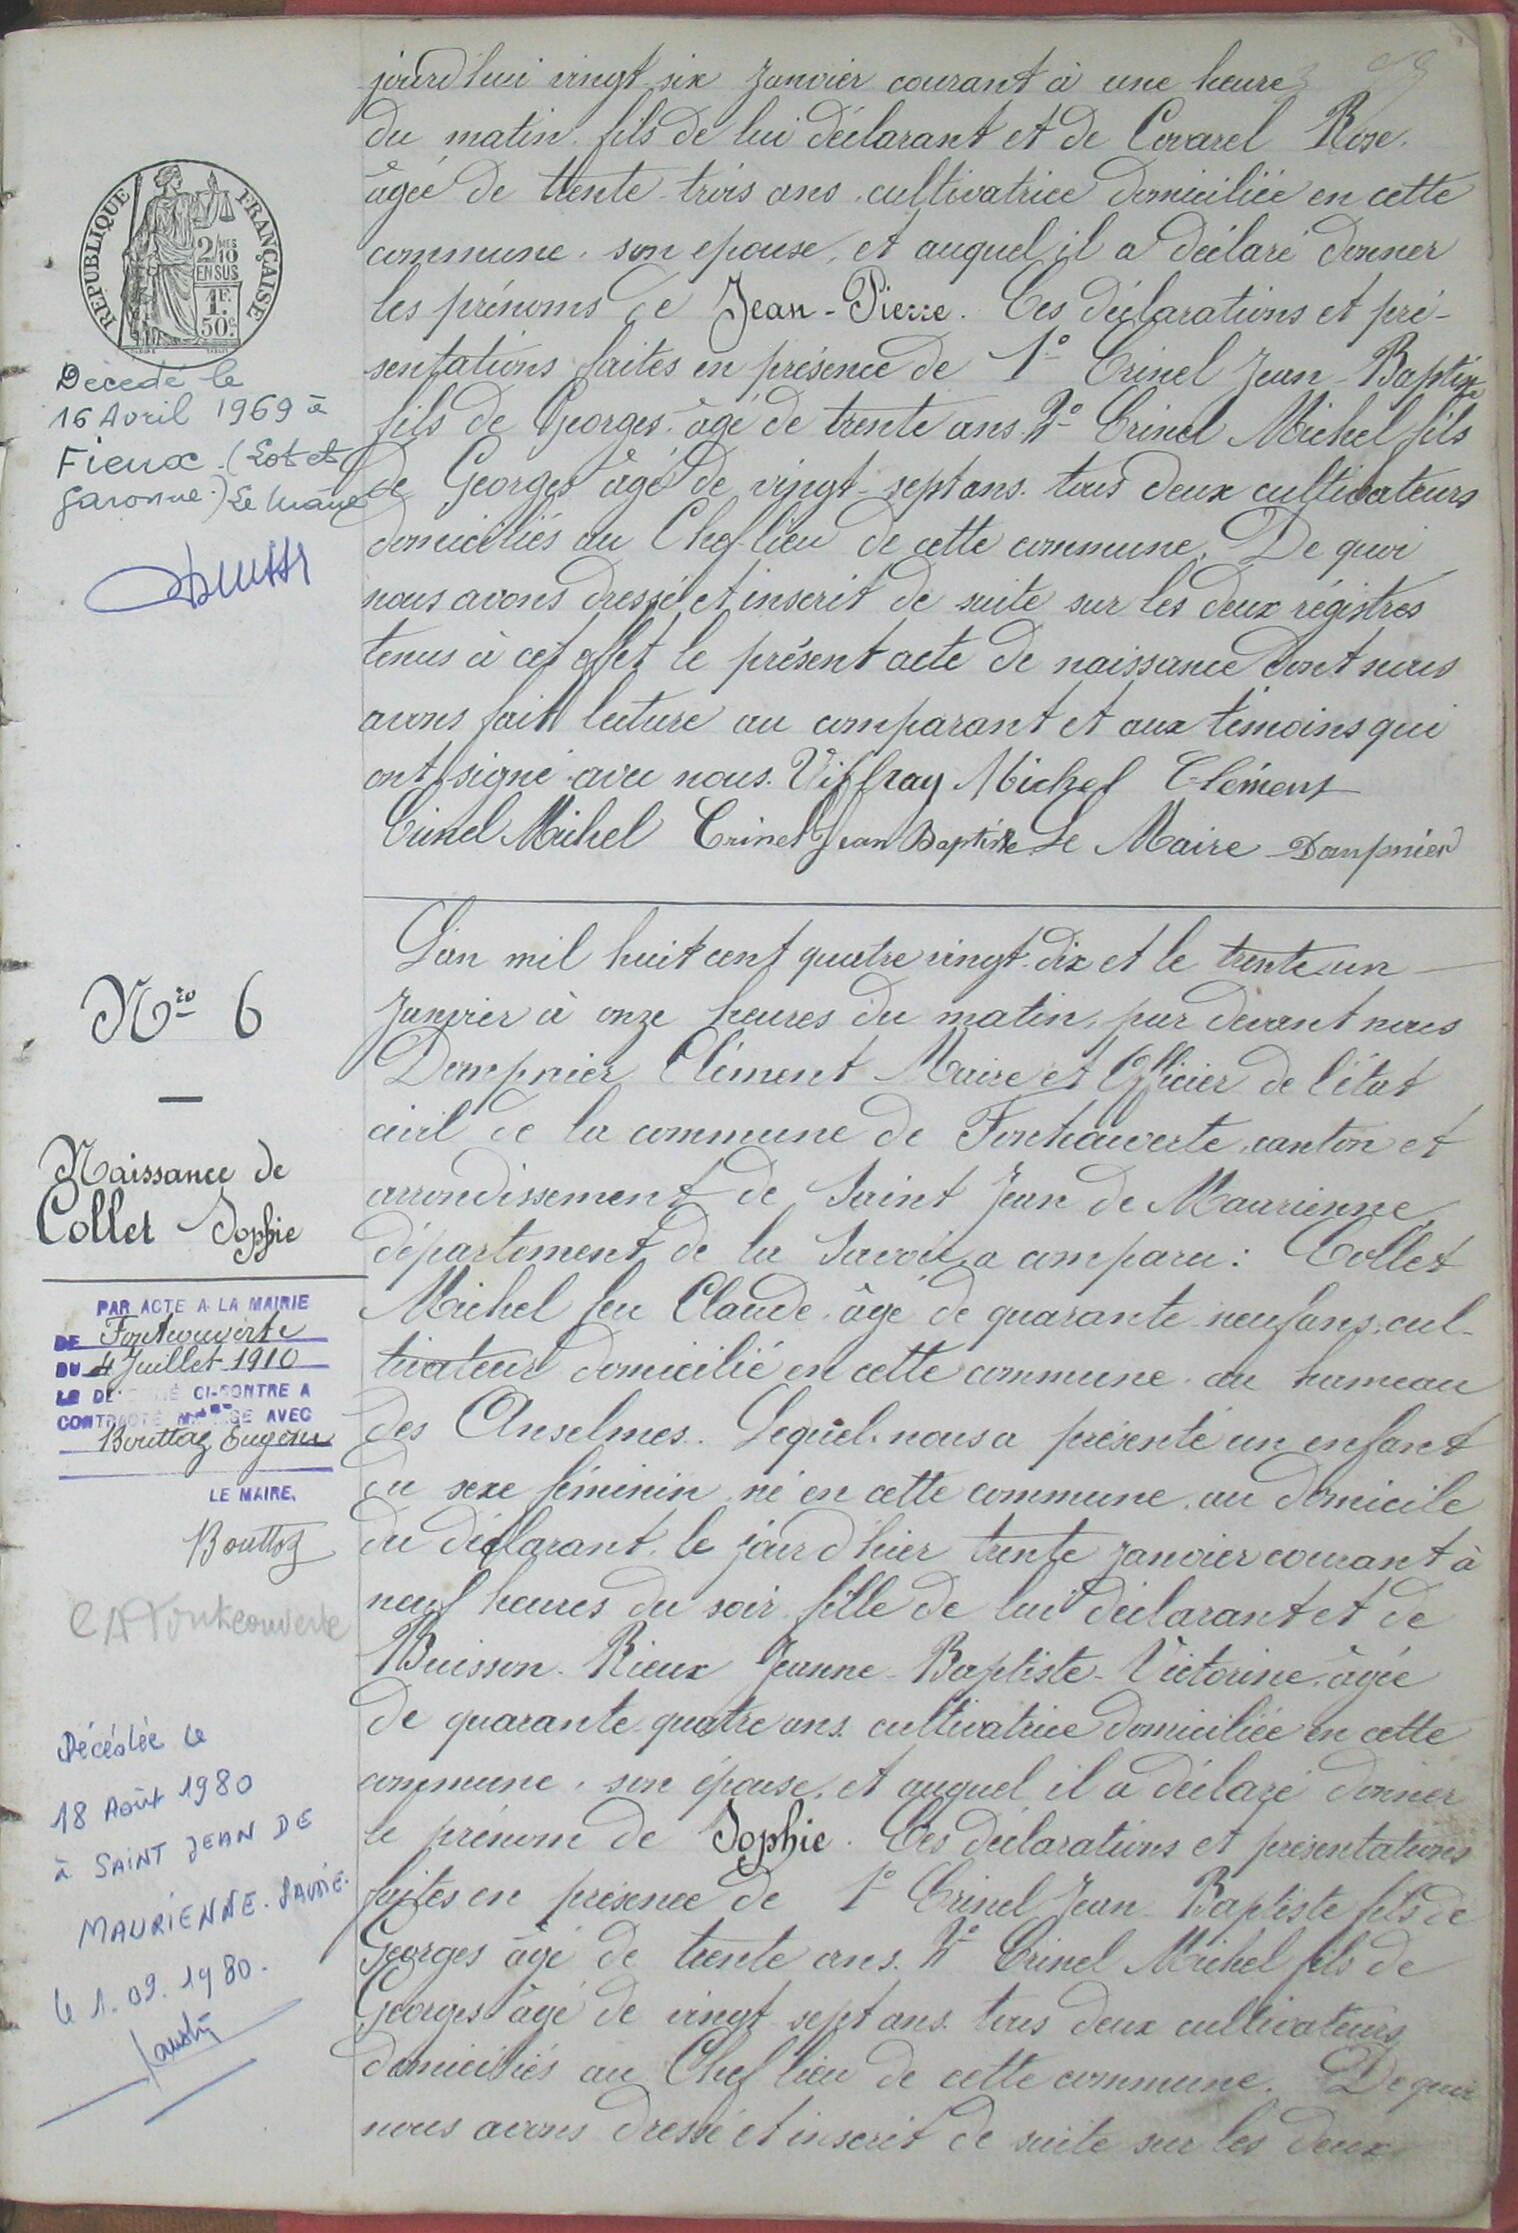 jourd'hui vingt-six Janvier courant à une heure
du matin. fils de lui déclarant et de Covarel Rose.
âgée de trente-trois ans. cultivatrice domiciliée en cette
commune. son epouse, et auquel il a déclaré donner
les prénoms de Jean-Pierre. Ces déclarations et pré-
sentations faites en présence de 1° Crinel Jean-Baptiste
fils de Georges. âgé de trente ans. 2° Crinel Michel fils
de Georges âgé de vingt-sept ans. tous deux cultivateurs
domiciliés au Chef-lieu de cette commune. De quoi
nous avons dressé et inscrit de suite sur les deux régistres
tenus à cet effet le présent acte de naissance dont nous
avons fait lecture au comparant et aux témoins qui
ont signé avec nous. Viffray Michel Clément
Crinel Michel Crinel Jean Baptiste Le Maire Dompnier
REPUBLIQUE FRANÇAISE
2/10 MES
EN SUS
1 F.
50 c.
Décédé le
16 Avril 1969 à
Fieux. (Lot et
Garonne.) Le Maire
Nro 6
Naissance de
Collet Sophie
PAR ACTE A LA MAIRIE
DE Fontcouverte
DU 4 Juillet 1910
CI-CONTRE A
CONTRACTÉ MARIAGE AVEC
Bouttaz Eugène
LE MAIRE,
Bouttaz
Fontcouverte
Décédée le
18 Août 1980
à SAINT JEAN DE
MAURIENNE. SAVOIE.
le 1. 09. 1980.
L'an mil huit cent quatre vingt-dix et le trente un
Janvier à onze heures du matin, par devant nous
Dompnier Clément Maire et Officier de l'état
civil de la commune de Fontcouverte, canton et
arrondissement de Saint Jean de Maurienne,
département de la Savoie, a comparu: Collet
Michel feu Claude. âgé de quarante neuf ans, cul-
tivateur domicilié en cette commune. au hameau
des Anselmes. Lequel nous a présenté un enfant
du sexe féminin, né en cette commune, au domicile
du déclarant, le jour d'hier trente Janvier courant à
neuf heures du soir. fille de lui déclarant et de
Buisson-Rieux Jeanne-Baptiste-Victorine. âgée
de quarante-quatre ans. cultivatrice domiciliée en cette
commune, son épouse, et auquel il a déclaré donner
le prénom de Sophie. Ces déclarations et présentations
faites en présence de 1° Crinel Jean Baptiste fils de
Georges âgé de trente ans. 2° Crinel Michel fils de
Georges âgé de vingt-sept ans. tous deux cultivateurs
domiciliés au Chef lieu de cette commune. De quoi
nous avons dressé et inscrit de suite sur les deux